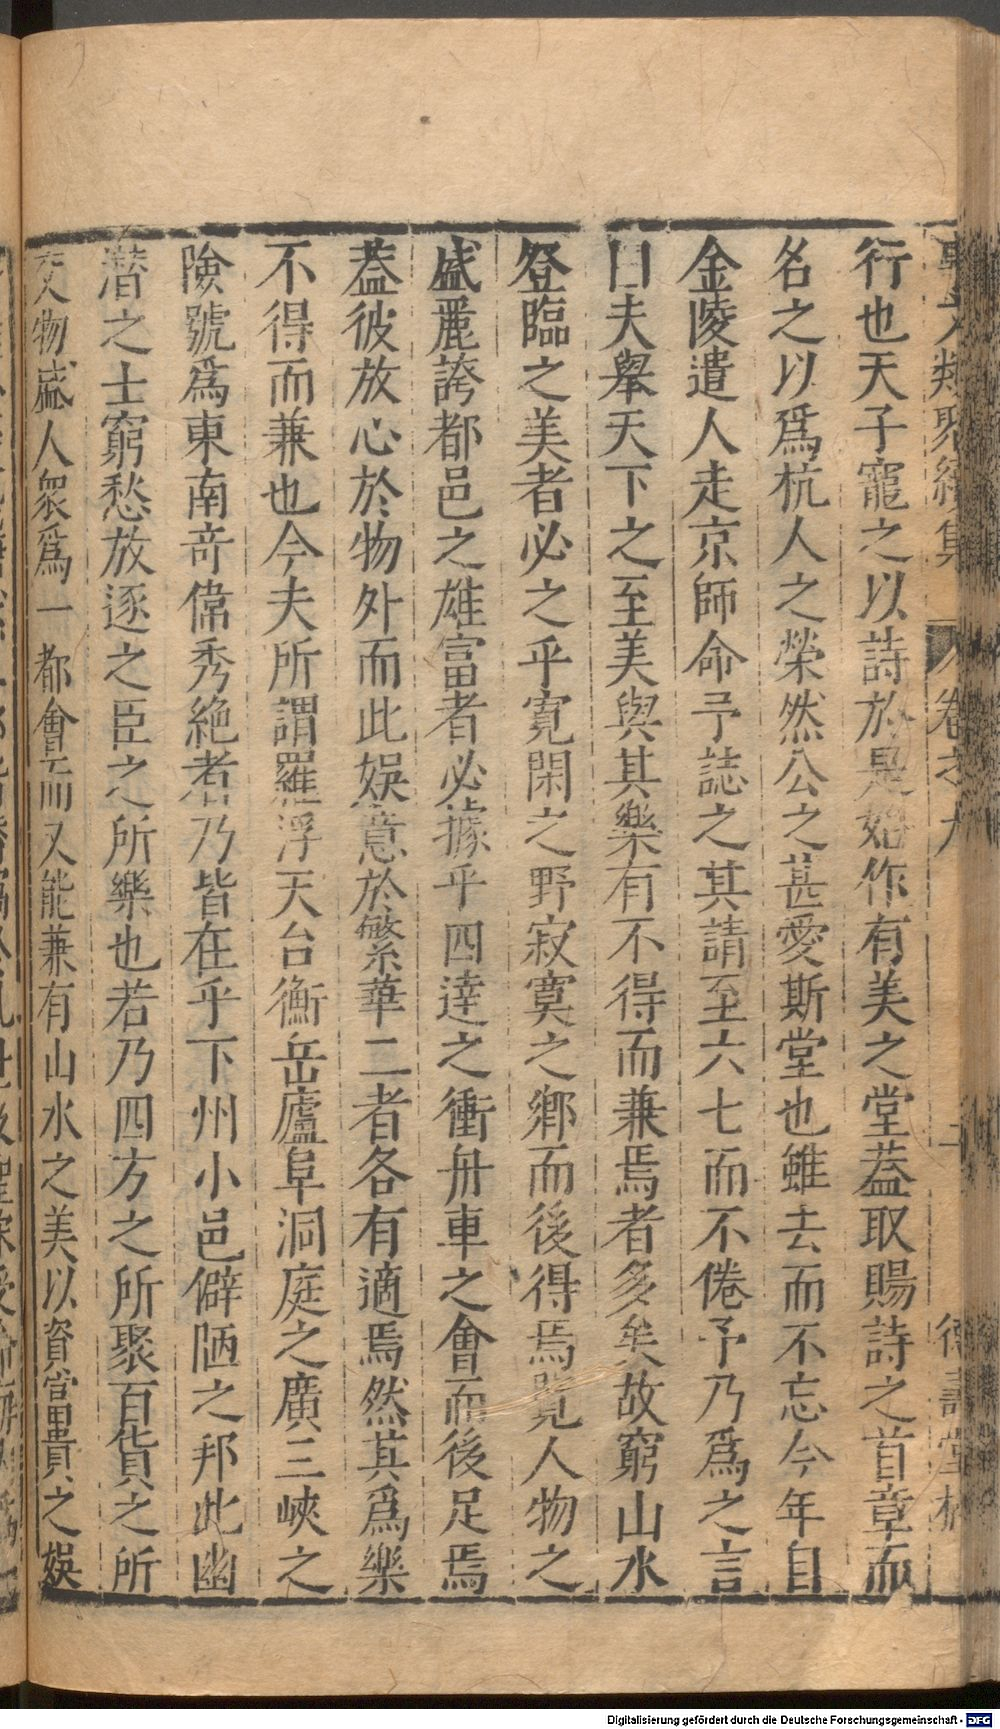 事文類聚續集 卷之九 二 德壽堂梓
行也天子寵之以詩於是始作有美之堂葢取賜詩之首章而
名之以爲杭人之榮然公之甚愛斯堂也雖去而不忘今年自
金陵遣人走京師命予誌之其請至六七而不倦予乃爲之言
曰夫舉天下之至美與其樂有不得而兼焉者多矣故窮山水
登臨之美者必之乎寬閑之野寂寞之鄉而後得焉覽人物之
盛麗誇都邑之雄富者必據乎四達之衝舟車之會而後足焉
葢彼放心於物外而此娛意於繁華二者各有適焉然其爲樂
不得而兼也今夫所謂羅浮天台衡岳廬阜洞庭之廣三峽之
險號爲東南竒偉秀絶者乃皆在乎下州小邑僻陋之邦此幽
潛之士窮愁放逐之臣之所樂也若乃四方之所聚百貨之所
交物盛人衆爲一都會而又能兼有山水之美以資富貴之娛
Digitalisierung gefördert durch die Deutsche Forschungsgemeinschaft - DFG